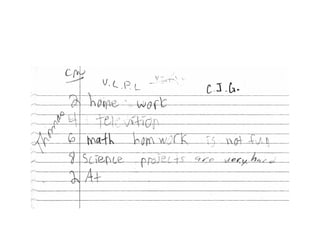 CM V.L.P.L C.J.G.
Thomas
2 home work
4 televition
6 math homwork is not fun
8 Science projects are very hard
2 At